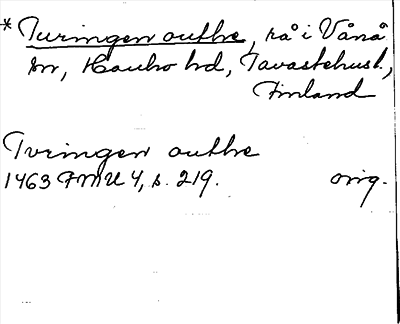 *Turingen outhe, rå i Vånå
sn, Hauho hd, Tavastehusl.,
Finland
Tvringen outhe
1463 FMU 4, s. 219. orig.